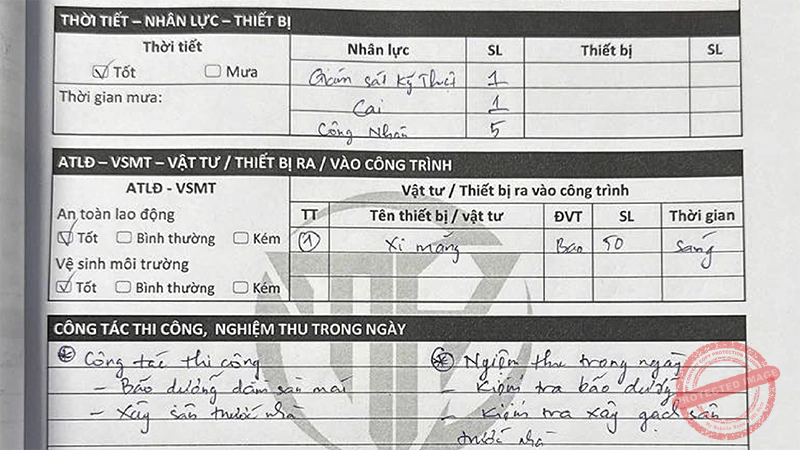 THỜI TIẾT – NHÂN LỰC – THIẾT BỊ
Thời tiết Nhân lực SL Thiết bị SL
Tốt Mưa Giám sát Kỹ Thuật 1
Thời gian mưa: Cai 1
Công Nhân 5
ATLĐ – VSMT – VẬT TƯ / THIẾT BỊ RA / VÀO CÔNG TRÌNH
ATLĐ - VSMT Vật tư / Thiết bị ra vào công trình
An toàn lao động TT Tên thiết bị / vật tư ĐVT SL Thời gian
Tốt Bình thường Kém 1 Xi măng Bao 50 sáng
Vệ sinh môi trường
Tốt Bình thường Kém
CÔNG TÁC THI CÔNG, NGHIỆM THU TRONG NGÀY
Công tác thi công
- Bảo dưỡng dầm sàn mái
- Xây sân trước nhà
Nghiệm thu trong ngày
- Kiểm tra bảo dưỡng
- Kiểm tra xây gạch sân
trước nhà
PROTECTED IMAGE